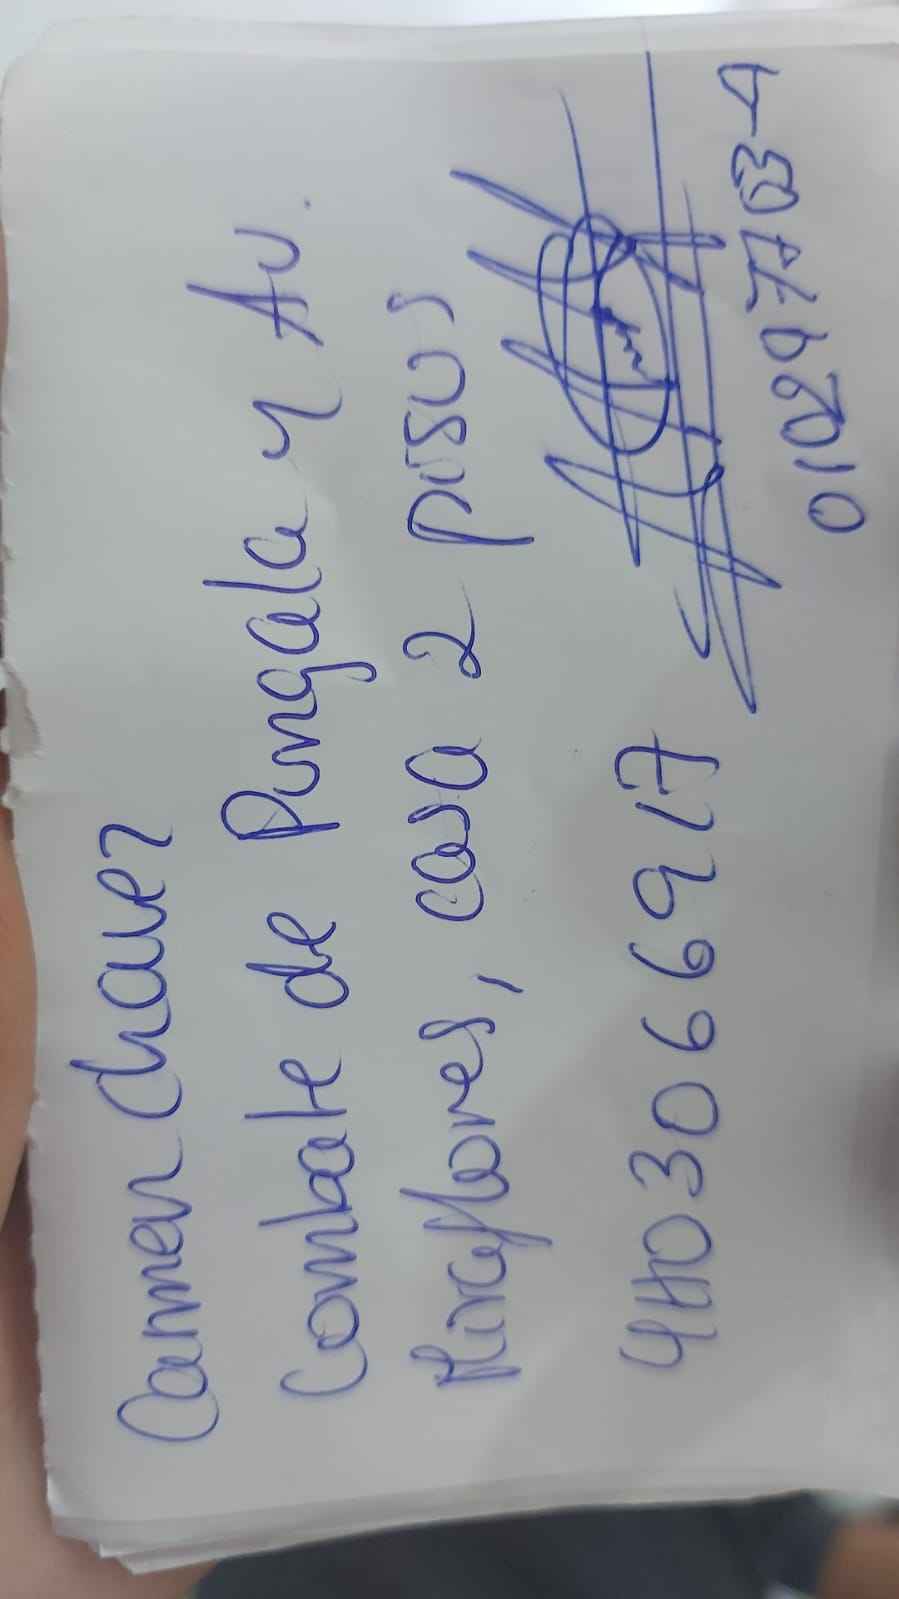 Carmen Chavez
Combate de Pungala y Av.
Miraflores, casa 2 pisos
4403066917